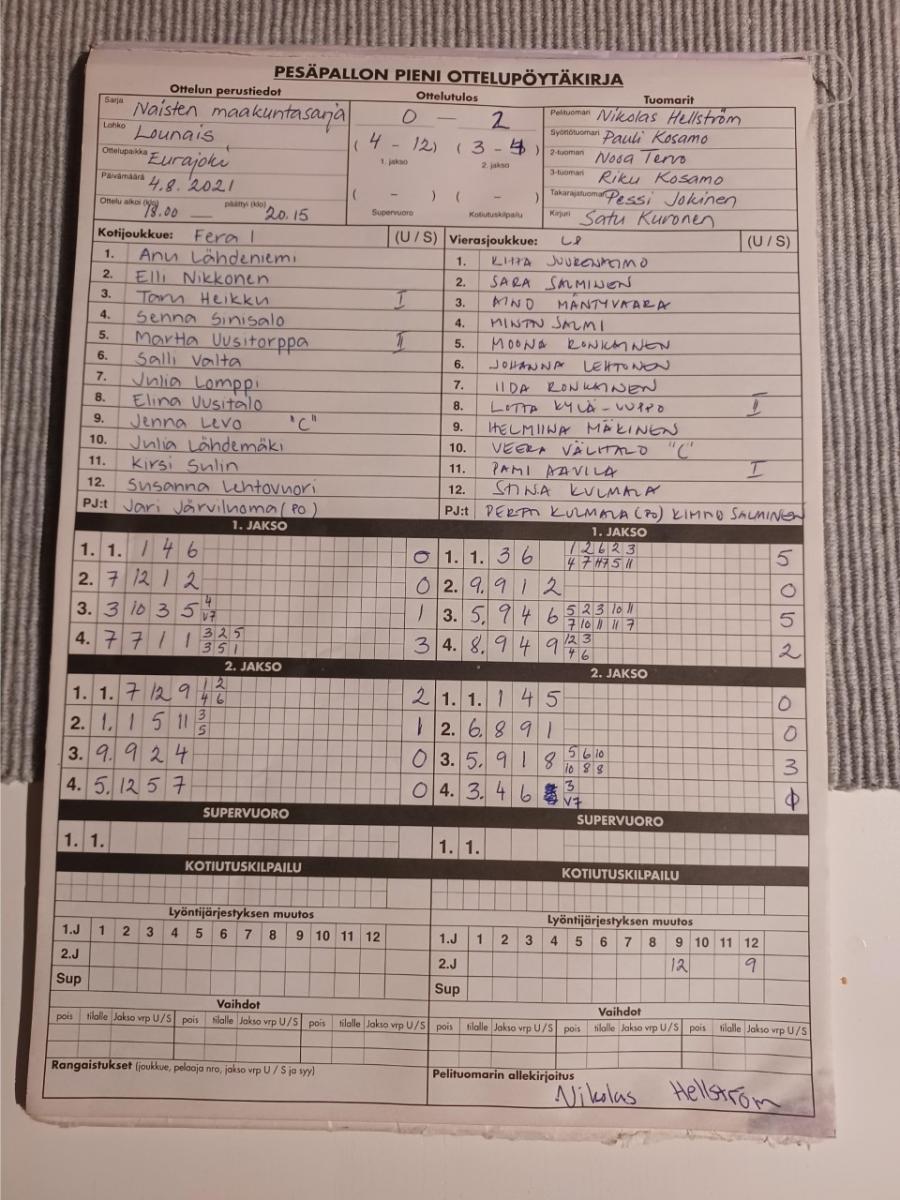 PESÄPALLON PIENI OTTELUPÖYTÄKIRJA
Ottelun perustiedot
Ottelutulos
Tuomarit
Sarja Naisten maakuntasarja
Lohko Lounais
Ottelupaikka Eurajoki
Päivämäärä 4.8.2021
Ottelu alkoi (klo) 18.00 päättyi (klo) 20.15
0 — 2
(4 - 12) (3 - 4)
1. jakso 2. jakso
( - ) ( - )
Supervuoro Kotiutuskilpailu
Pelituomari Nikolas Hellström
Syöttötuomari Pauli Kosamo
2-tuomari Noora Tervo
3-tuomari Riku Kosamo
Takarajatuomari Pessi Jokinen
Kirjuri Satu Kuronen
Kotijoukkue: Fera I (U / S)
1. Anu Lähdeniemi
2. Elli Nikkonen
3. Taru Heikku I
4. Senna Sinisalo
5. Martta Uusitorppa II
6. Salli Valta
7. Julia Lomppi
8. Elina Uusitalo
9. Jenna Levo "C"
10. Julia Lähdemäki
11. Kirsi Sulin
12. Susanna Lehtovuori
PJ:t Jari Järviluoma (PO)
Vierasjoukkue: (U / S)
1.
2. SARA SALMINEN
3. AINO MÄNTYVAARA
4. SALMI
5. MOONA RONKAINEN
6. JOHANNA LEHTONEN
7. IIDA RONKAINEN
8. LOTTA KYLÄ-UUPPO II
9. HELMIINA MÄKINEN
10. VEERA VÄLITALO "C"
11. PAMI AAVILA I
12. STINA KULMALA
PJ:t KULMALA (PO) KIMMO SALMINEN
1. JAKSO
1. 1. 1 4 6 0
2. 7 12 1 2 0
3. 3 10 3 5 4 1
V7
4. 7 7 1 1 3 2 5 3
3 5 1
1. JAKSO
1. 1. 3 6 1 2 6 2 3 5
4 7 5 11
2. 9. 9 1 2 0
3. 5. 9 4 6 5 2 3 10 11 5
7 10 11 11 7
4. 8. 9 4 9 12 3 2
4 6
2. JAKSO
1. 1. 7 12 9 1 2 2
4 6
2. 1. 1 5 11 3 1
5
3. 9. 9 2 4 0
4. 5. 12 5 7 0
2. JAKSO
1. 1. 1 4 5 0
2. 6. 8 9 1 0
3. 5. 9 1 8 5 6 10 3
10 8 8
4. 3. 4 6 3
V7
SUPERVUORO
1. 1.
SUPERVUORO
1. 1.
KOTIUTUSKILPAILU
KOTIUTUSKILPAILU
Lyöntijärjestyksen muutos
1.J 1 2 3 4 5 6 7 8 9 10 11 12
2.J
Sup
Lyöntijärjestyksen muutos
1.J 1 2 3 4 5 6 7 8 9 10 11 12
2.J 12 9
Sup
Vaihdot
pois tilalle Jakso vrp U / S pois tilalle Jakso vrp U / S pois tilalle Jakso vrp U / S
Vaihdot
pois tilalle Jakso vrp U / S pois tilalle Jakso vrp U / S pois tilalle Jakso vrp U / S
Rangaistukset (joukkue, pelaaja nro, jakso vrp U / S ja syy)
Pelituomarin allekirjoitus
Nikolas Hellström